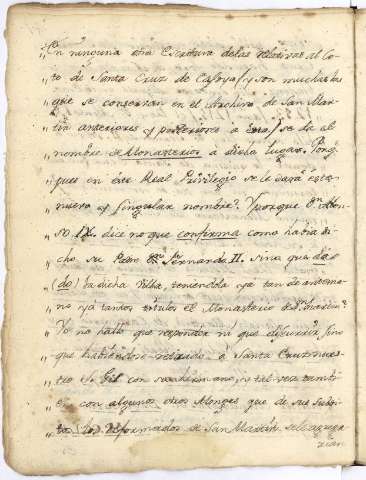 „ En ninguna otra Escritura de las relativas al Co-
„ to de Santa Cruz de / y son muchas las
„ que se conservan en el Archivo de San Mar-
„ tin anteriores y posteriores a / se da el
„ nombre de Monasterio à dicho lugar. Porq.
„ pues en este Real Privilegio se le dará este
„ nuevo y singular nombre? Y porque Dn. Alon-
„ so IX. dice no que confirma como havia di-
„ cho su Padre Dn. Fernando II. sino que da
„ (do) la dicha Villa, teniendola ya tan de antema-
„ no y a tantos titulos el Monasterio de Sn. Martin?
„ Yo no hallo que responder ni que discurrir sin
„ que habiendose retirado à Santa Cruz
„ Gil con su hermano, y tal vez tambi-
„ en con algunos otros Monges que de sus
„ (los Reformados de San Martin se